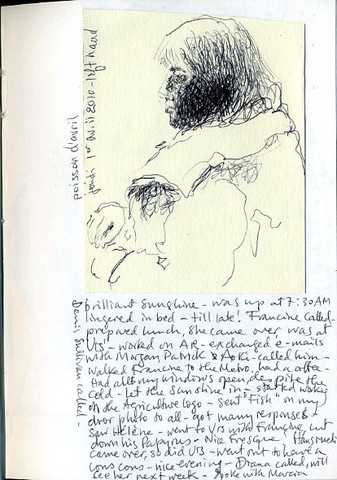 poisson d'avril
jeudi 1er avril 2010 - left hand
Dennis Sullivan called -
brilliant sunshine - was up at 7:30 AM
lingered in bed - till late! Francine called -
prepared lunch, she came over, was at
- worked on AR - exchanged e-mails
with Morgan Patrick & Aoki - called him -
walked Francine to the Metro, had a coffee -
Had all my windows open despite the
cold - let the Sunshine in - started working
on the Agriculture logo - Sent "Fish" on my
door photo to all - got many responses -
Saw Hélène - went to with Francine, cut
down his Papyrus - Nice fresque!
came over, so did - went out to have a
couscous - nice evening - Diana called, will
see her next week - Spoke with Marcia